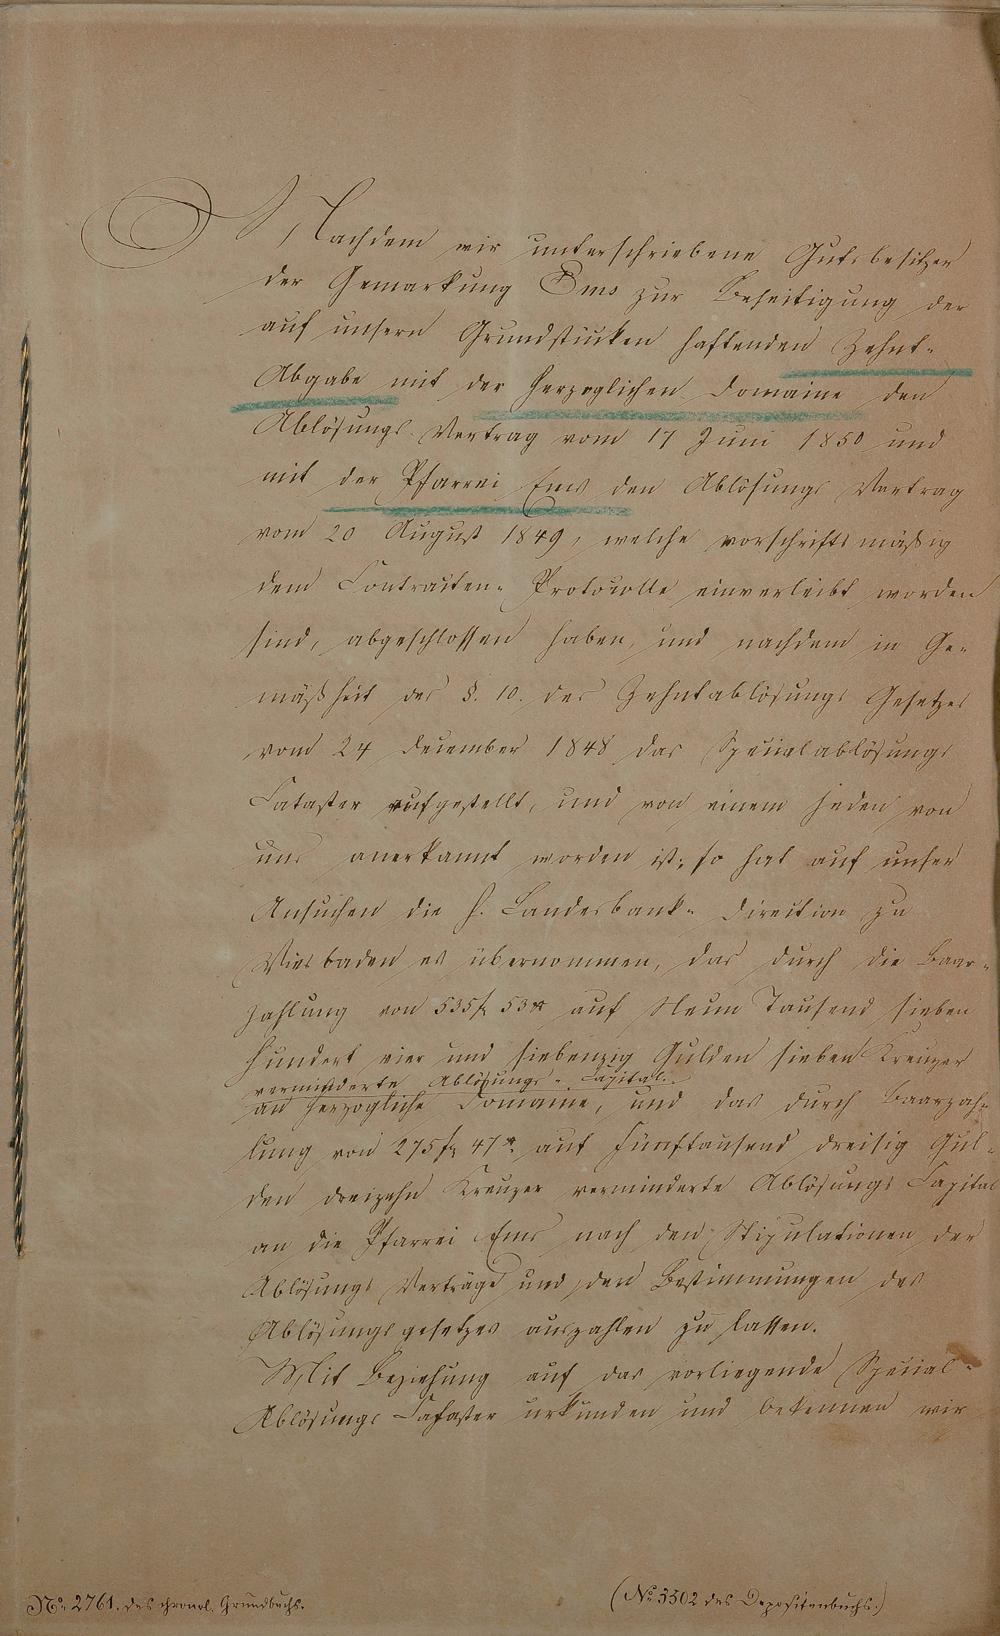 Nachdem wir unterschriebene Gutsbesitzer
der Gemarkung Ems zur Beseitigung der
auf unsern Grundstücken haftenden Zehnt-
Abgabe mit der Herzoglichen Domaine den
Ablösungs Vertrag vom 17 Juni 1850 und
mit der Pfarrei Ems den Ablösungs Vertrag
vom 20 August 1849, welche vorschriftsmäßig
dem Contracten-Protocolle einverleibt worden
sind, abgeschlossen haben, und nachdem in Ge-
mäßheit des §. 10. des Zehntablösungs Gesetzes
vom 24 December 1848 das Specialablösungs
Cataster aufgestellt, und von einem jeden von
uns anerkannt worden ist; so hat auf unser
Ansuchen die H. Landesbank-Direction zu
Wiesbaden es übernommen, das durch die Baar-
zahlung von 535f 53xr auf Neun Tausend sieben
hundert vier und siebenzig Gulden sieben Kreuzer
verminderte Ablösungs-Capital
an Herzogliche Domaine, und das durch Baarzah-
lung von 275f 47xr auf Fünftausend dreisig Gul-
den dreizehn Kreuzer verminderte Ablösungs Capital
an die Pfarrei Ems nach den Stipulationen der
Ablösungs Verträge und den Bestimmungen des
Ablösungsgesetzes auszahlen zu lassen.
Mit Beziehung auf das vorliegende Special-
Ablösungs Cataster urkunden und bekennen wir
No. 2761. des chronol. Grundbuchs.
(No. 3302 des Depositenbuchs.)